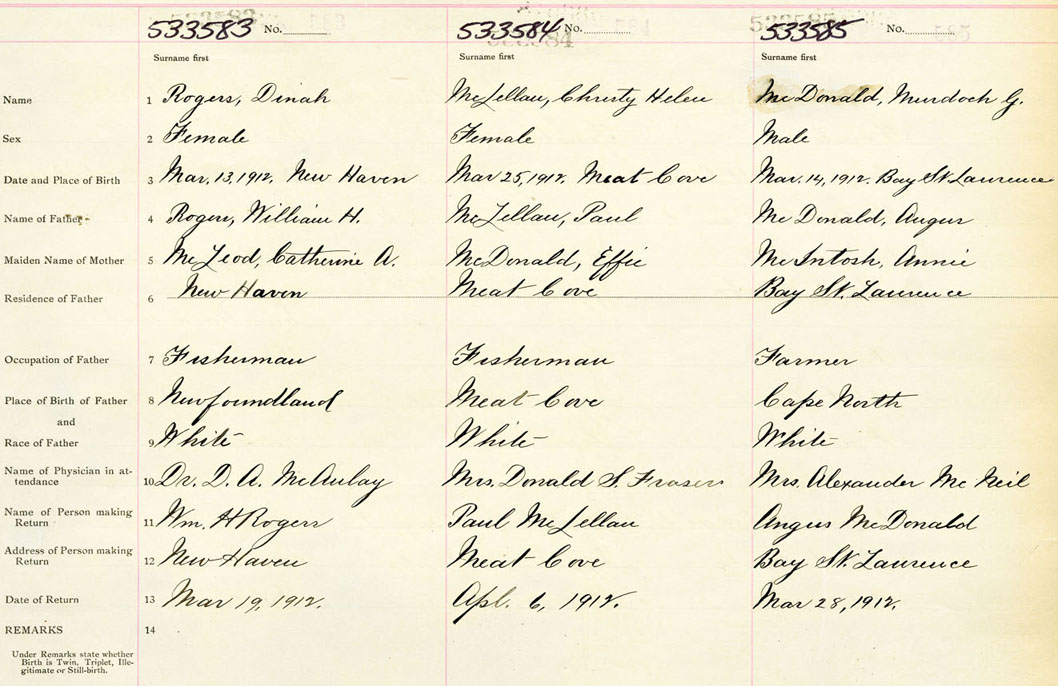 533583 No. 533584 No. 533585 No.
Surname first Surname first Surname first
Name 1 Rogers, Dinah McLellan, Christy Helen McDonald, Murdoch G.
Sex 2 Female Female Male
Date and Place of Birth 3 Mar. 13, 1912. New Haven Mar 25, 1912. Meat Cove Mar. 14, 1912. Bay St. Laurence
Name of Father 4 Rogers, William H. McLellan, Paul McDonald, Angus
Maiden Name of Mother 5 McLeod, Catherine A. McDonald, Effie McIntosh, Annie
Residence of Father 6 New Haven Meat Cove Bay St. Laurence
Occupation of Father 7 Fisherman Fisherman Farmer
Place of Birth of Father 8 Newfoundland Meat Cove Cape North
and
Race of Father 9 White White White
Name of Physician in at-
tendance 10 Dr. D. A. McAulay Mrs. Donald S. Fraser Mrs. Alexander McNeil
Name of Person making
Return 11 Wm. H Rogers Paul McLellan Angus McDonald
Address of Person making
Return 12 New Haven Meat Cove Bay St. Laurence
Date of Return 13 Mar 19, 1912. Apl. 6, 1912. Mar 28, 1912.
REMARKS 14
Under Remarks state whether
Birth is Twin, Triplet, Ille-
gitimate or Still-birth.